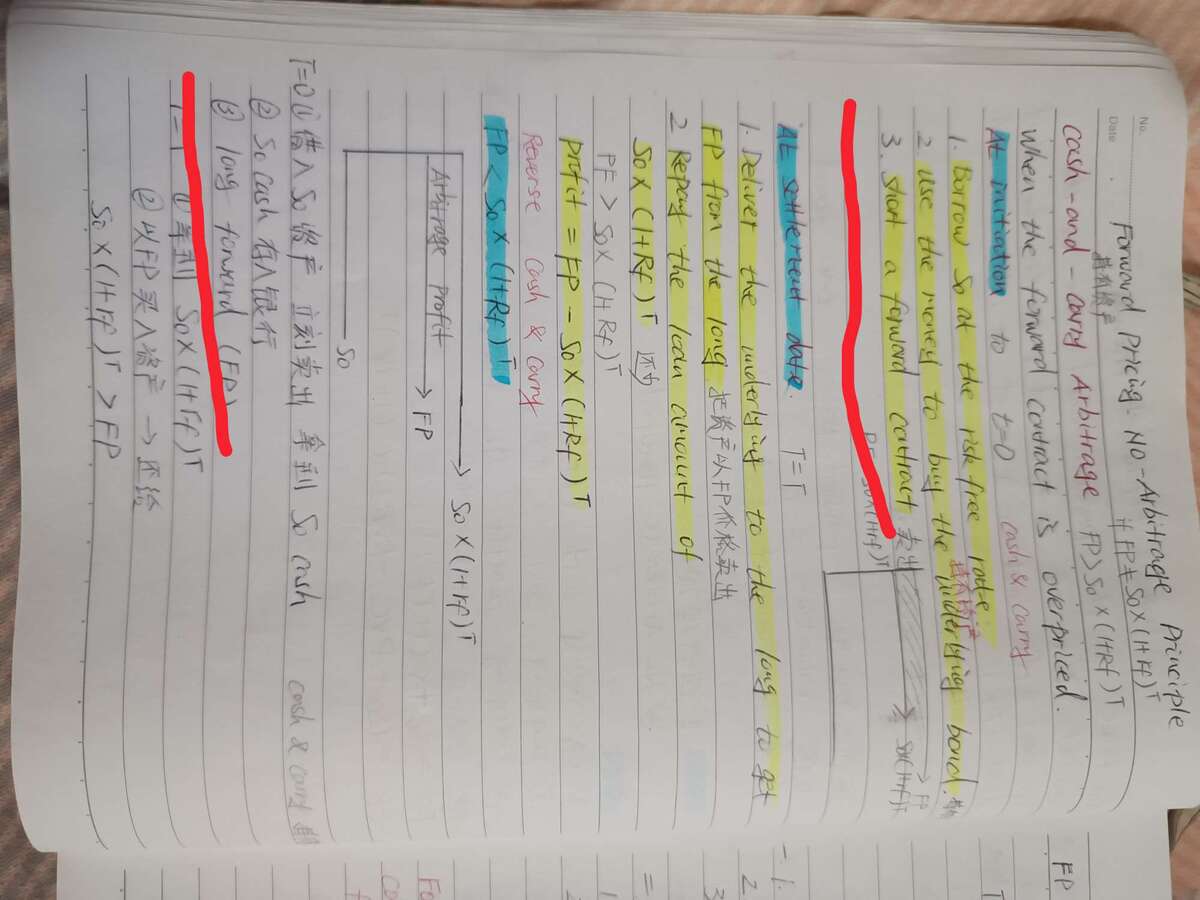 No.
Date
Forward Pricing - No-Arbitrage Principle
若 FP ≠ S0 X (1+rf)^T
cash-and-carry Arbitrage FP > S0 X (1+Rf)^T
When the forward contract is overpriced.
At initiation to t=0 cash & carry
1. Borrow S0 at the risk free rate.
2 use the money to buy the underlying bond.
3. start a forward contract 卖出
→ FP
S0X(1+rf)^T
At settlement date. T=T
1. Deliver the underlying to the long to get
FP from the long 把资产以FP价格卖出
2 Repay the loan amount of
S0 X (1+Rf)^T
PF > S0 X (1+Rf)^T
profit = FP - S0 X (1+Rf)^T
Reverse cash & carry
FP < S0 X (1+Rf)^T
→ S0 X (1+rf)^T
Arbitrage profit → FP
S0
T=0 ① 借入S0资产 立刻卖出 拿到 S0 cash cash & carry
② S0 cash 存入银行
③ long forward (FP)
① 拿到 S0X(1+rf)^T
② 以FP买入资产 → 还给
S0 X (1+rf)^T > FP
FP